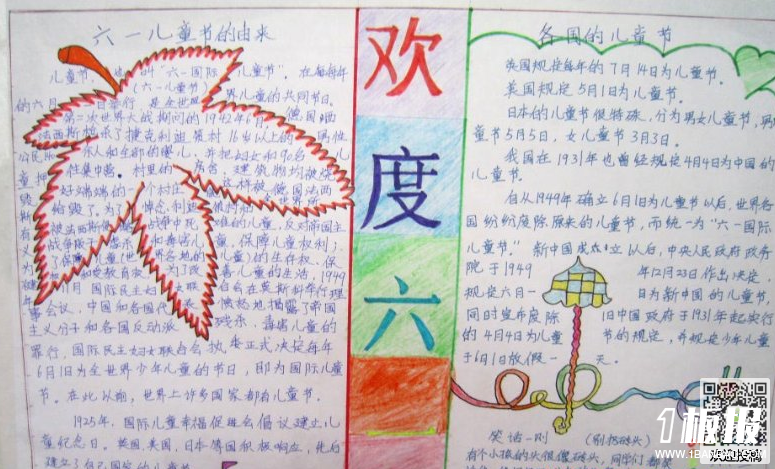 六一儿童节的由来
儿童节, 叫"六一国际儿童节"。在每年
的六月 举行 是全世界儿童的共同节日。
(六一儿童节)
第二次世界大战期间的1942年6月, 德国
法西斯 杀了捷克利迪策村16岁以上的 男性
公民 人和全部的婴儿, 并把妇女和90名 儿
童押 往集中营。村里的 房舍、建筑物均被烧
毁 好端端的一个村庄 这样被德国法西
斯给毁了。为了悼念利迪
战争中死 的儿童, 反对帝国主
义战争贩子 和毒害儿童, 保障儿童权利
了保障 世界各地的儿童的生存权、保
健 和受教育权 为了改善儿童的生活, 1949
年11月 国际民主妇女联合会在莫斯科举行理
事会议, 中国和各国代表愤怒地揭露了帝国
主义分子和各国反动派 残杀、毒害儿童的
罪行。国际民主妇女联合会执委正式决定每年
6月1日为全世界少年儿童的节日, 即为国际儿童
节。在此以前, 世界上许多国家都有儿童节。
1925年, 国际儿童幸福促进会倡议建立儿
童纪念日。英国, 美国, 日本等国积极响应, 此后
建立了自己国家的儿童节
欢
度
六
一
各国的儿童节
英国规定每年的7月14日为儿童节。
美国规定5月1日为儿童节。
日本的儿童节很特殊, 分为男女儿童节, 男
童节5月5日, 女儿童节3月3日。
我国在1931年也曾经规定4月4日为中国的
儿童节。
自从1949年确立6月1日为儿童节以后, 世界各
国纷纷废除原来的儿童节, 而统一为"六一国际
儿童节。"新中国成立以后, 中央人民政府政务
院于1949年12月23日作出决定,
规定六月一日为新中国的儿童节,
同时宣布废除旧中国政府于1931年起实行
的4月4日为儿童节的规定, 并规定少年儿童
于6月1日放假一天。
笑话一则 (别捂破头)
有个小孩的头很像砖头, 同学们都
1板报
WWW.1BANBAO.COM